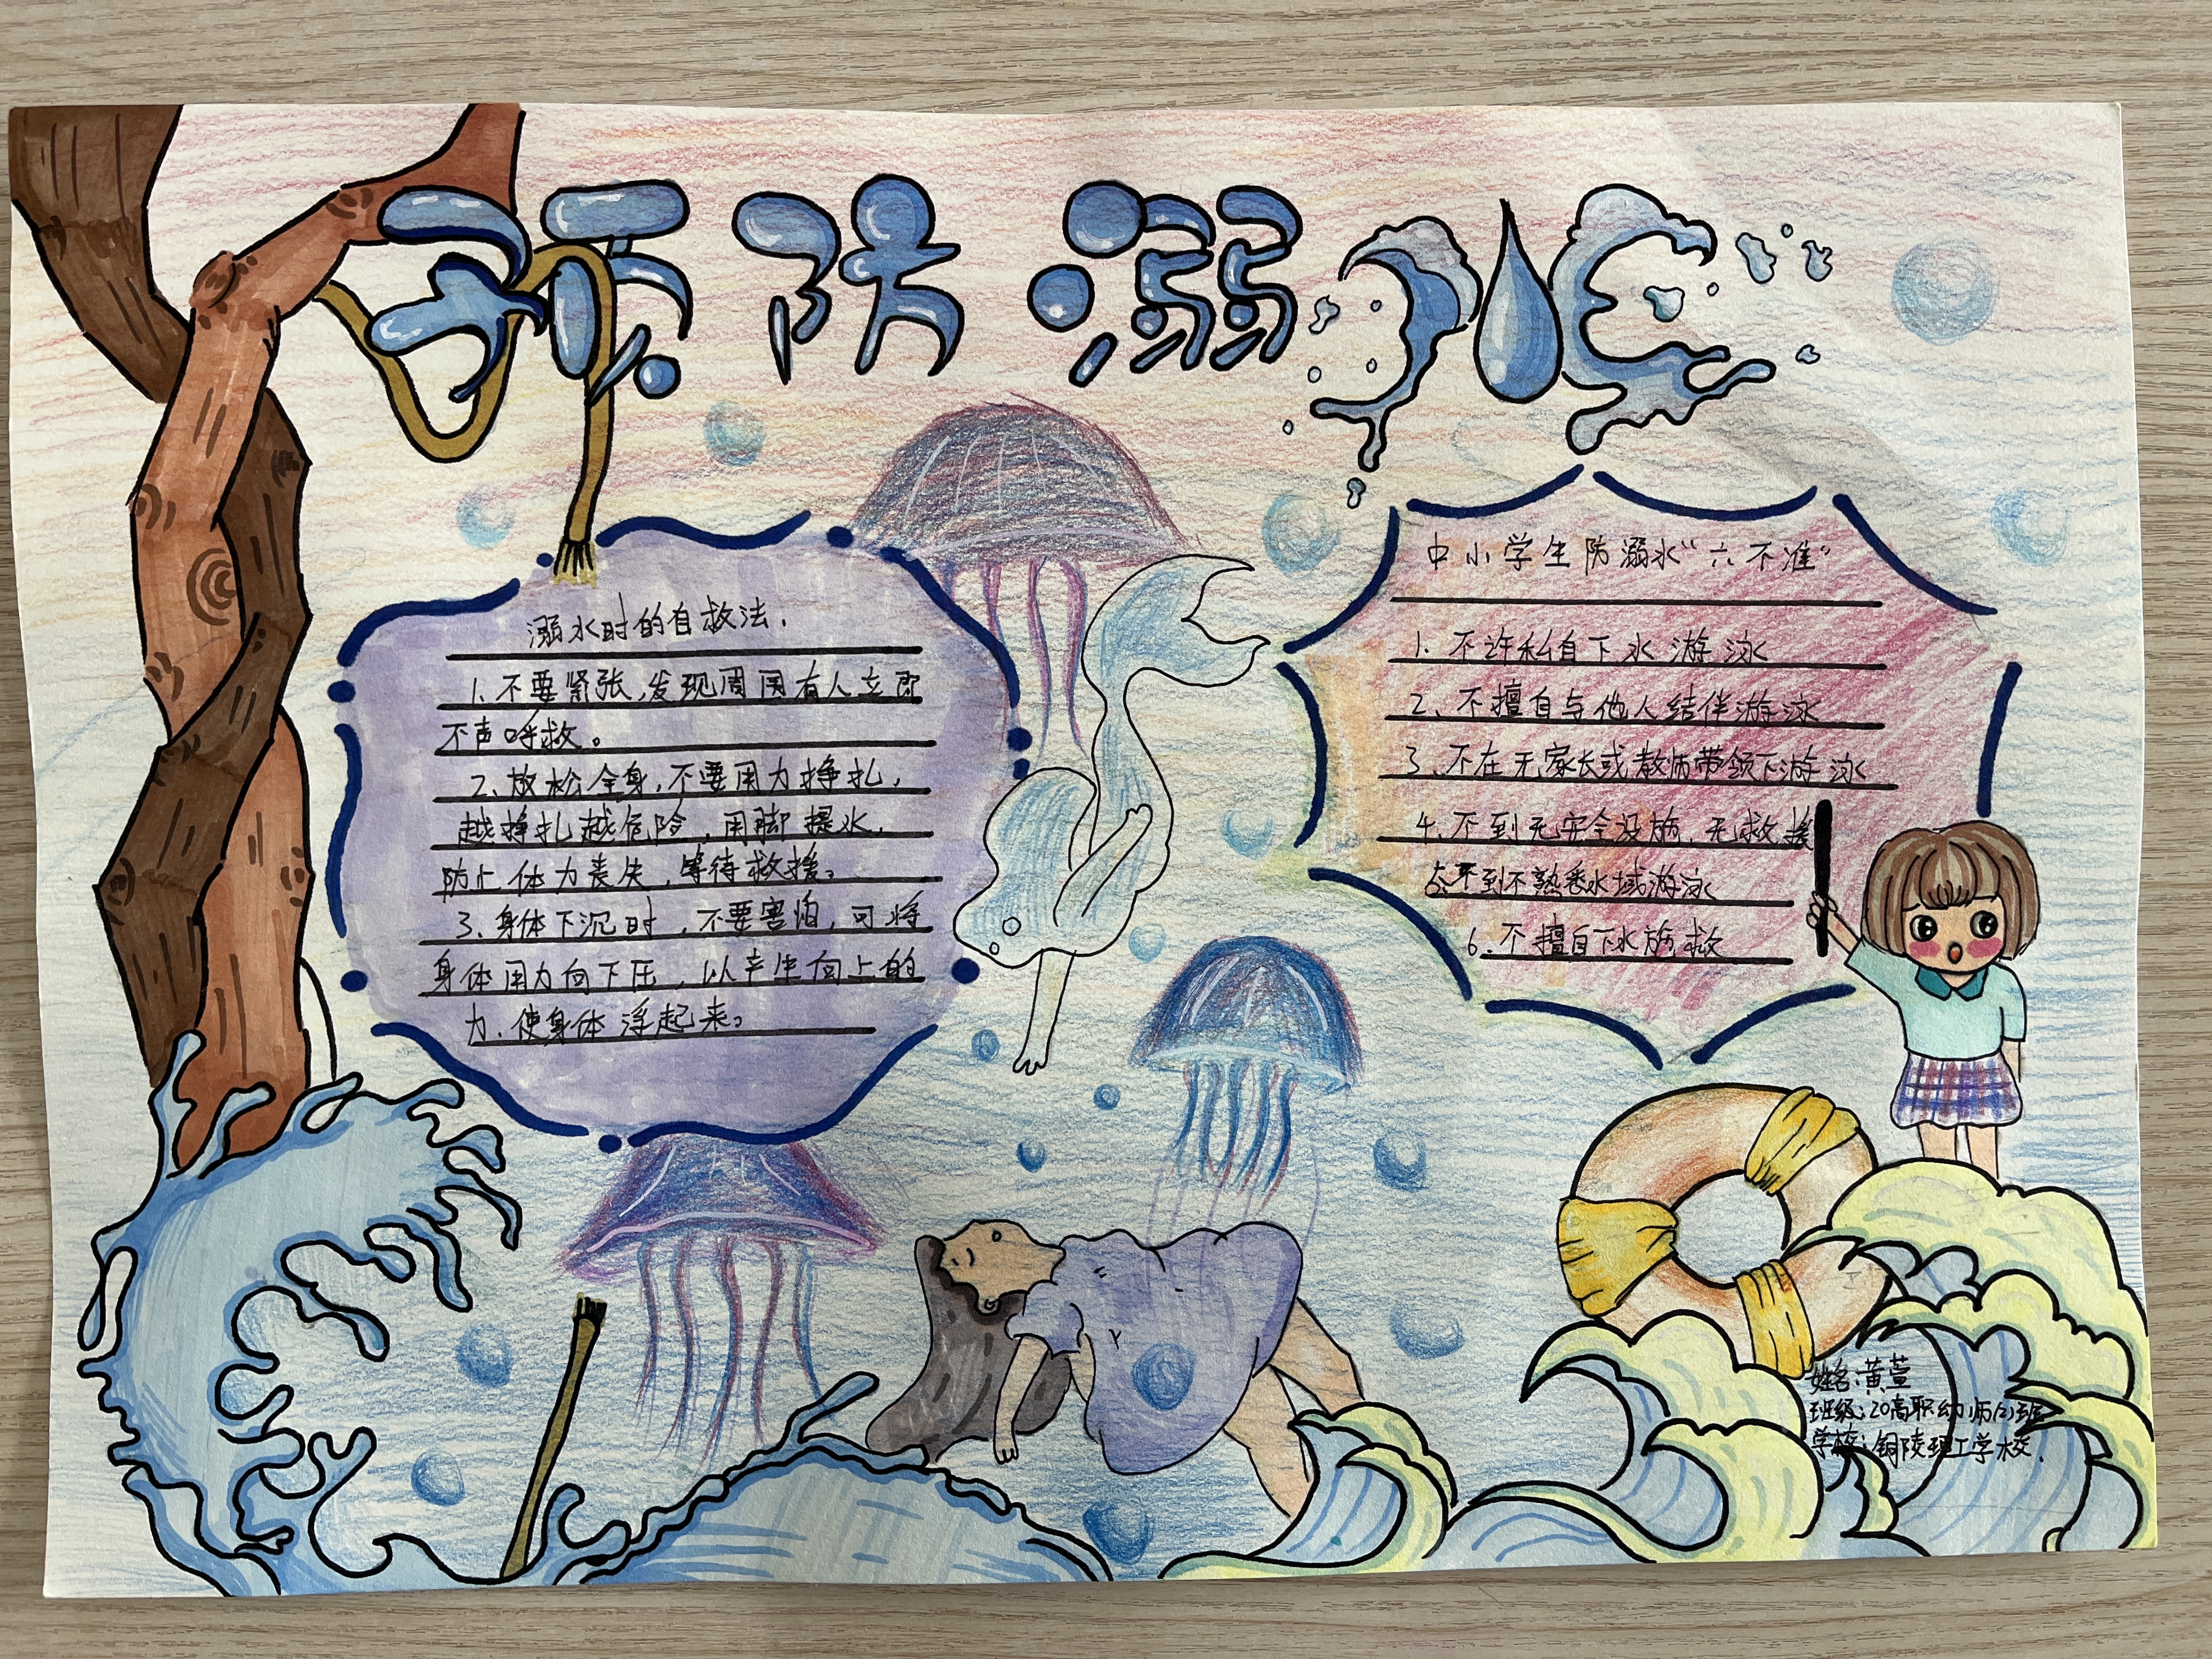 预防溺水
溺水时的自救法.
1.不要紧张,发现周围有人立即
不声呼救。
2、放松全身,不要用力挣扎,
越挣扎越危险,用脚提水.
防止体力丧失,等待救援。
3、身体下沉时,不要害怕,可将
身体用力向下压,以产生向上的
力.使身体浮起来。
中小学生防溺水“六不准”
1.不许私自下水游泳
2、不擅自与他人结伴游泳
3、不在无家长或教师带领下游泳
4、不到无安全设施、无救援
5、不到不熟悉水域游泳
6.不擅自下水施救
姓名:黄萱
班级:20高职幼师(2)班
学校:铜陵理工学校.